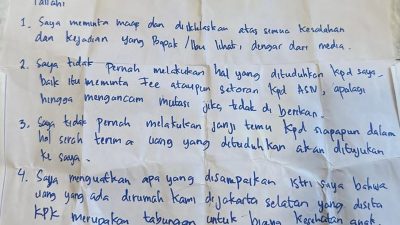 1. Saya meminta maap dan diikhlaskan atas semua kesalahan
dan kejadian yang Bapak / Ibu lihat, dengar dari media.
2. Saya tidak Pernah melakukan hal yang dituduhkan kpd saya
baik itu meminta Fee ataupun setoran kpd ASN, apalagi
hingga mengancam mutasi jika tidak di berikan.
3. Saya tidak pernah melakukan janji temu kpd siapapun dalam
hal serah terima uang yang dituduhkan akan ditujukan
ke saya.
4. Saya menguatkan apa yang disampaikan istri saya bahwa
uang yang ada dirumah kami dijakarta selatan yang disita
KPK merupakan tabungan untuk biaya kesehatan anak